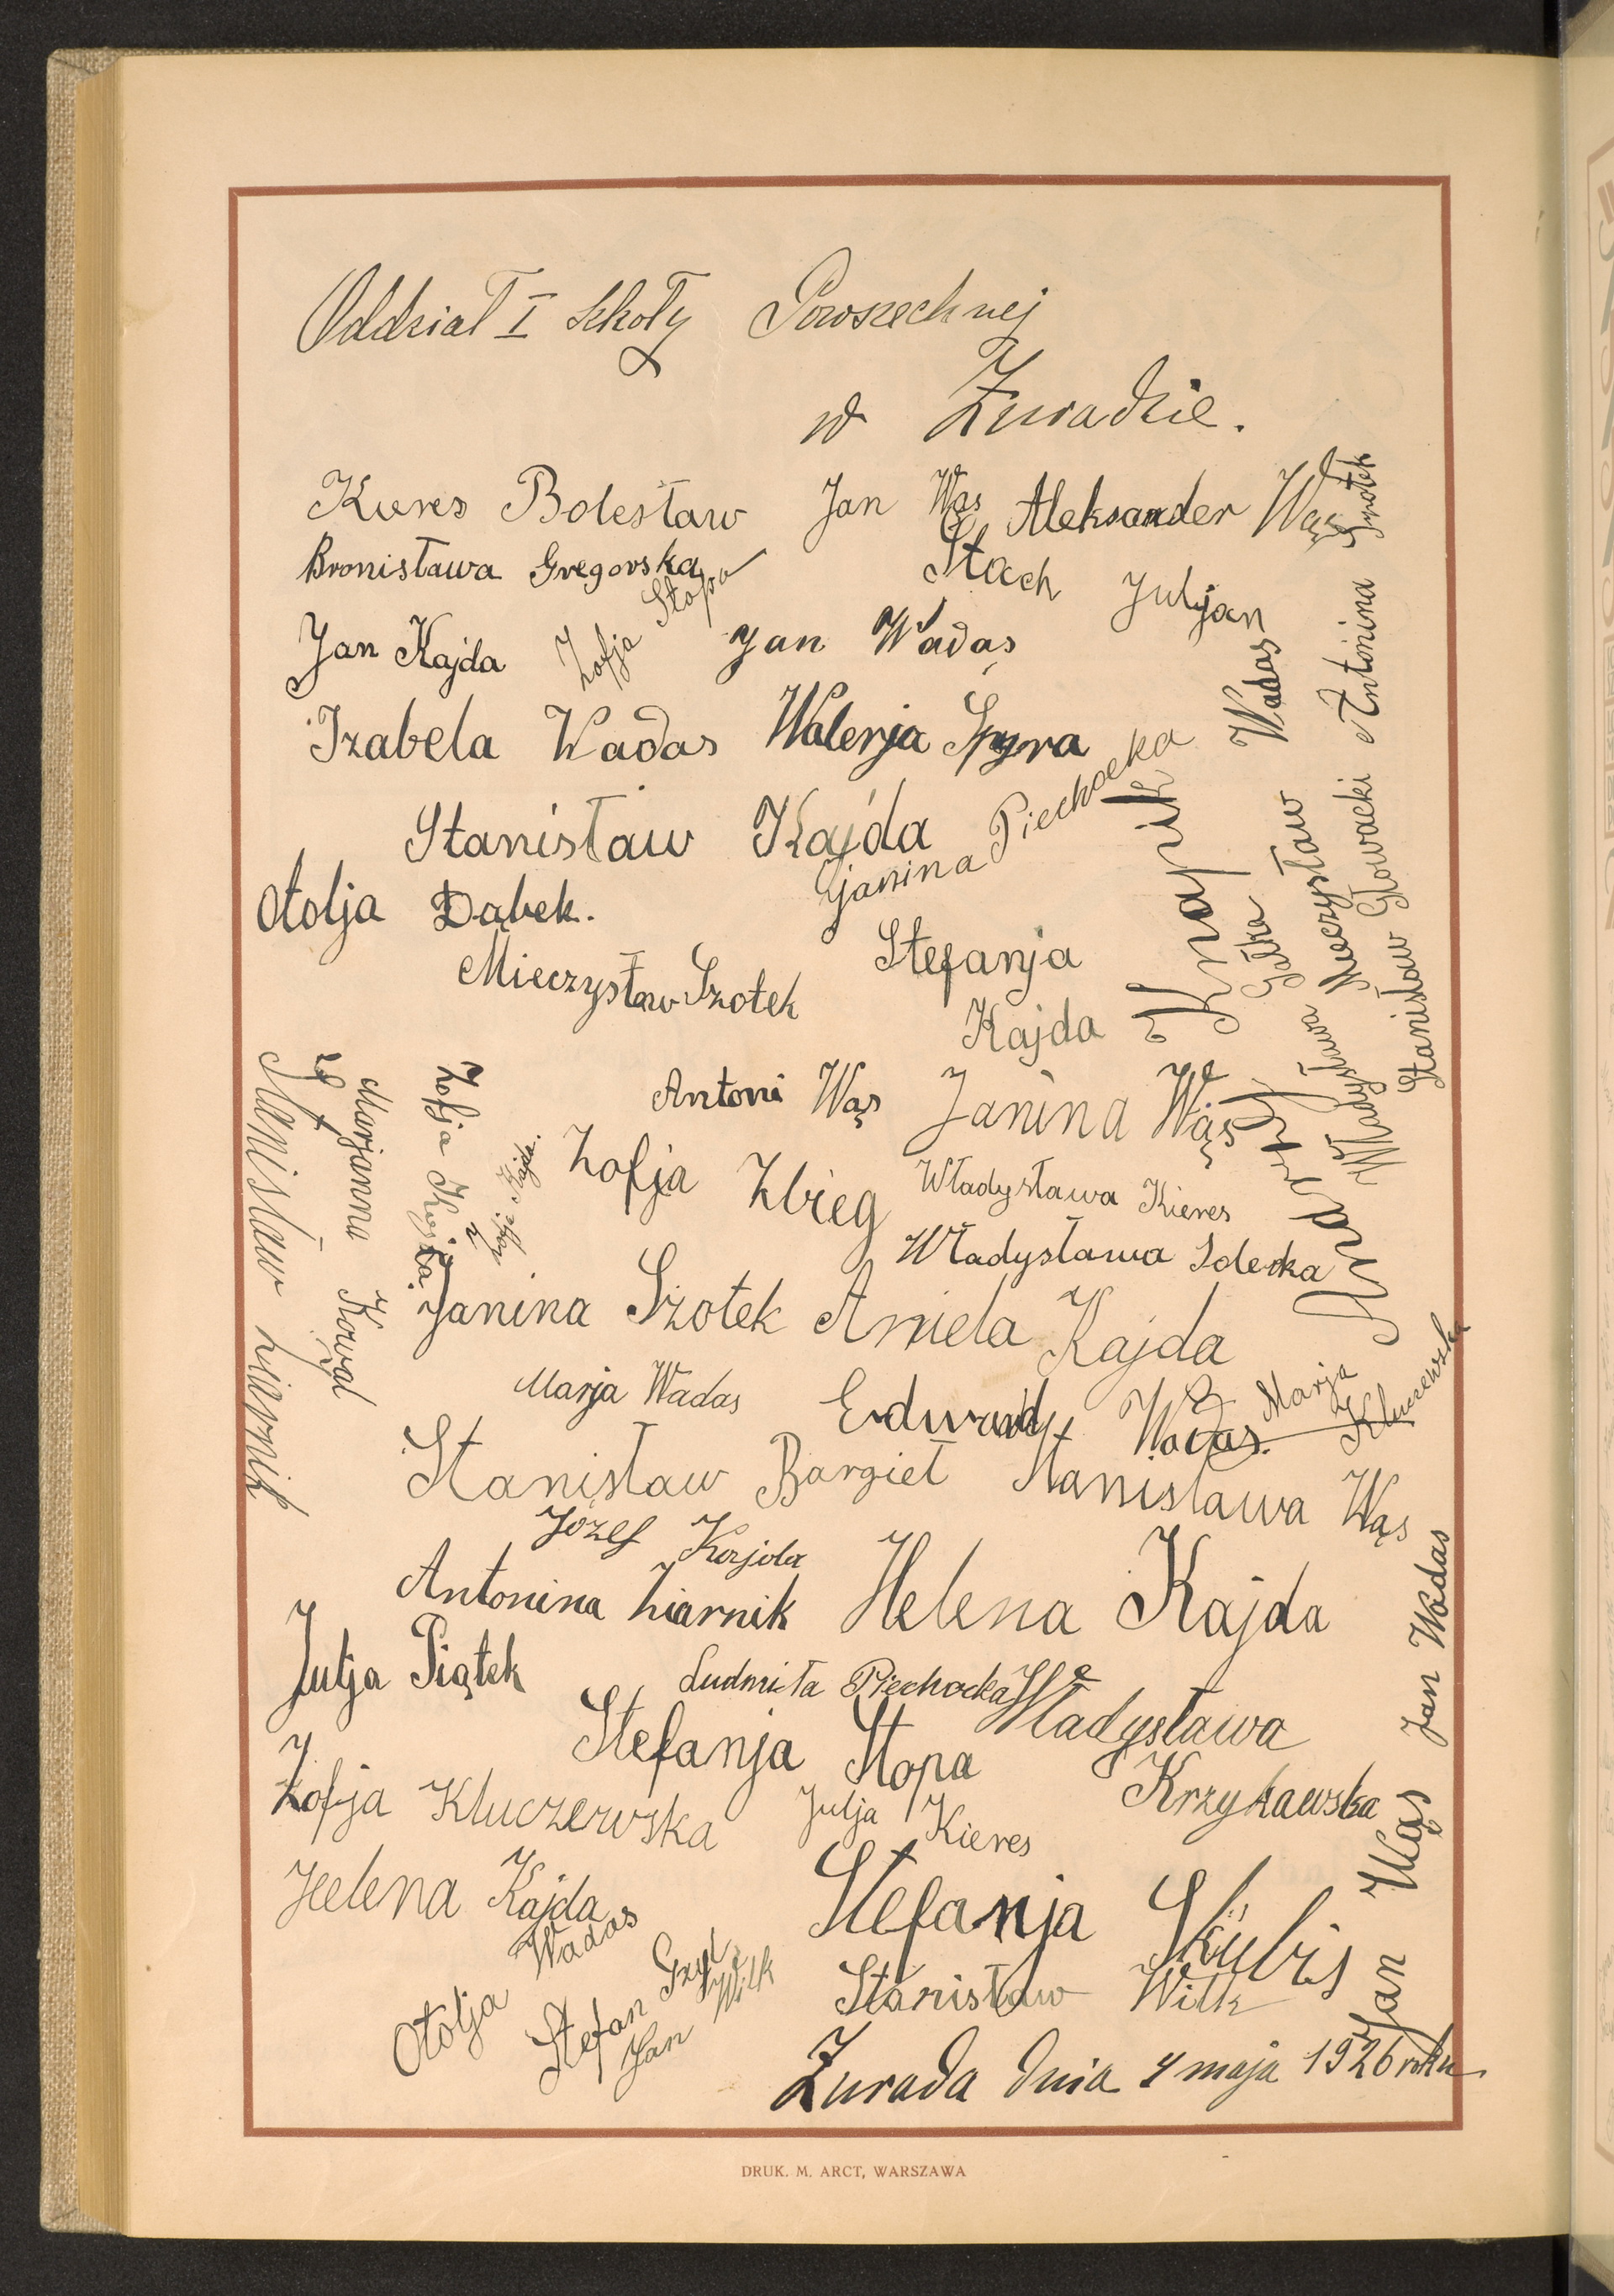 Oddział I Szkoły Powszechnej
w Żuradzie.
Kieres Bolesław
Jan Wąs
Aleksander Wąs
Bronisława Gregorska
Stach Juljan
Jan Kajda
Zofja Stopa
Jan Wadas
Izabela Wadas
Walerja Spyra
Stanisław Kajda
Janina Piechocka
Otolja Dąbek.
Mieczysław Szotek
Stefanja
Kajda
Antoni Wąs
Janina Wąs
Zofja Zbieg
Władysława Kieres
Władysława
Janina Szotek
Aniela Kajda
Marja Wadas
Edward Wadas.
Marja
Kluczewska
Stanisław Bargieł
Stanisława Wąs
Józef Kajda
Antonina Ziarnik
Helena Kajda
Julja Piątek
Ludmiła Piechocka
Władysława
Krzykawska
Stefanja Stopa
Zofja Kluczewska
Julja Kieres
Helena Kajda
Stefanja Skubis
Otolja Wadas
Stefan Gzyl
Jan Wilk
Stanisław Wilk
Stanisław Ziarnik
Marjanna Kowal
Zofja Kajda
Zofja Kajda.
Andrzej Knapik
Gałka
Wadas
Władysława
Mieczysław
Antonina
Stanisław Głowacki
Jan Wąs
Jan Wadas
Żurada dnia 4 maja 1926 roku
DRUK. M. ARCT, WARSZAWA